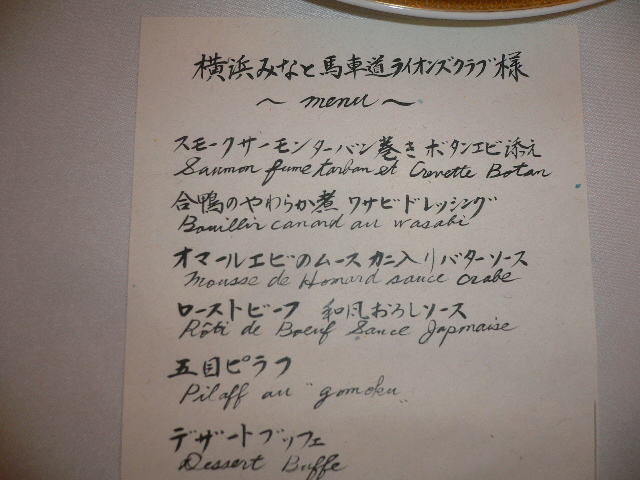 横浜みなと馬車道ライオンズクラブ様
～ menu ～
スモークサーモンターバン巻き ボタンエビ添え
Saumon fume tarban et Crevette Botan
合鴨のやわらか煮 ワサビドレッシング
Bouillir canard au wasabi
オマールエビのムース カニ入りバターソース
Mousse de Homard sauce crabe
ローストビーフ 和風おろしソース
Rôti de Boeuf Sauce Japonaise
五目ピラフ
Pilaff au "gomoku"
デザートブッフェ
Dessert Buffe